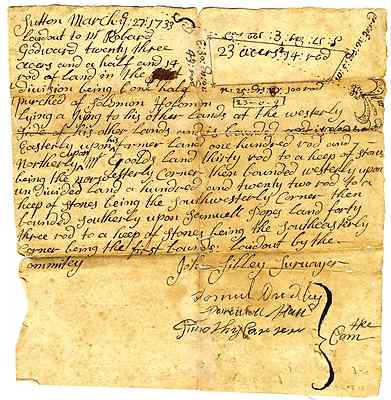 Sutton March 9: 27: 1733
Laidout to mr Robard
Godward twenty three
acers and a half and 14
rod of land in the
division being one half
purched of Solomon Holomon
lying a Jying to his other lands at the westerly
side of his other Lands and is bounded
Easterly upon former land one hundred rod and 7
Northerly upon Mr Goods land thirty rod to a heep of stones
being the norwesterly Corner then bounded westerly upon
undivided Land a hundred and twenty two rod to a
heep of stones being the southwesterly Corner then
bounded southerly upon Samuell Popes land forty
three rod to a heep of stones being the southeasterly
Corner being the first bounds: Laidout by the
Commitey
John Sibley Survayer
Samuel Dudley
Hall
Timothy Carter
the
Com
23 acers: 94: rod